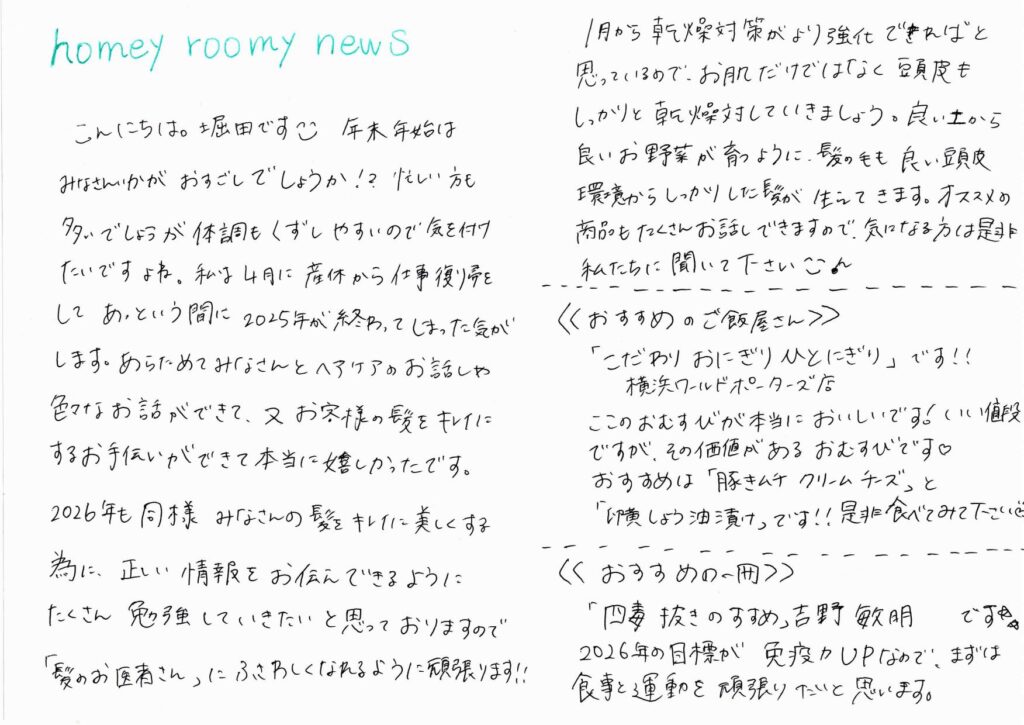 homey roomy news
こんにちは。堀田です 年末年始は
みなさんいかが おすごしでしょうか!? 忙しい方も
多いでしょうが 体調もくずしやすいので気を付け
たいですよね。私は4月に 産休から仕事復帰を
して あっという間に 2025年が終わってしまった気が
します。あらためてみなさんとヘアケアのお話しや
色々なお話ができて、又 お客様の髪をキレイに
するお手伝いができて本当に嬉しかったです。
2026年も同様 みなさんの髪をキレイに美しくする
為に、正しい 情報を お伝えできるように
たくさん 勉強していきたいと思っておりますので
「髪のお医者さん」に ふさわしくなれるように頑張ります!!
1月から乾燥対策がより強化できればと
思っているので、お肌だけではなく 頭皮も
しっかりと 乾燥対していきましょう。良い土から
良いお野菜が育つように、髪の毛も 良い頭皮
環境からしっかりした髪が 生えてきます。オススメの
商品もたくさんお話しできますので、気になる方は是非
私たちに聞いて下さい♪
《おすすめのご飯屋さん》
「こだわり おにぎり ひとにぎり」です!!
横浜ワールドポーターズ店
ここのおむすびが本当に おいしいです!いい値段
ですが、その価値がある おむすびです♡
おすすめは「豚キムチ クリームチーズ」と
「卵黄しょう油漬け」です!!是非食べてみて下さい
《おすすめの一冊》
「四毒 抜きのすすめ」吉野 敏明 です
2026年の目標が 免疫力UPなので、まずは
食事と運動を 頑張りたいと思います。